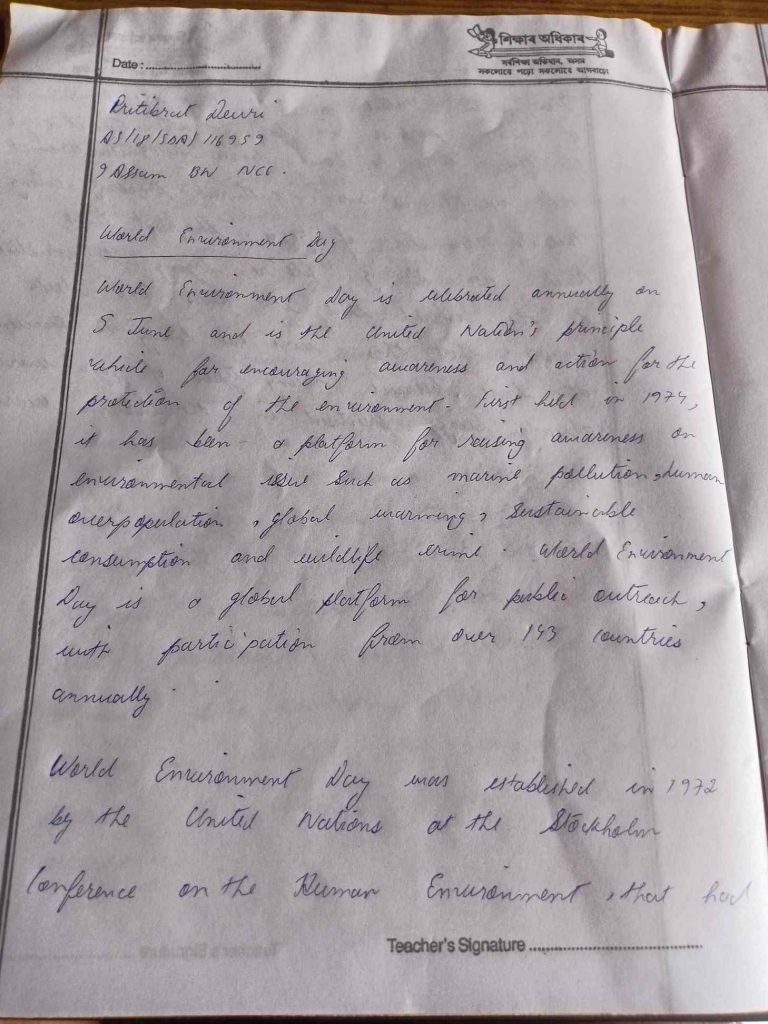 শিক্ষাৰ অধিকাৰ
সর্বশিক্ষা অভিযান, অসম
সকলোৱে পঢ়ো সকলোৱে আগবাঢ়ো
Date :
Pritibrat Deuri
AS/18/SDA/116959
9 Assam BN NCC.
World Environment Day
World Environment Day is celebrated annually on
5 June and is the United Nation's principle
vehile for encouraging awareness and action for the
protection of the environment. First held in 1974,
it has been a platform for raising awareness on
environmental issue such as marine pollution, human
overpopulation, global warming, Sustainable
consumption and wildlife crime. World Environment
Day is a global platform for public outreach,
with participation from over 143 countries
annually.
World Environment Day was established in 1972
by the United Nations at the Stockholm
Conference on the Human Environment, that had
Teacher's Signature